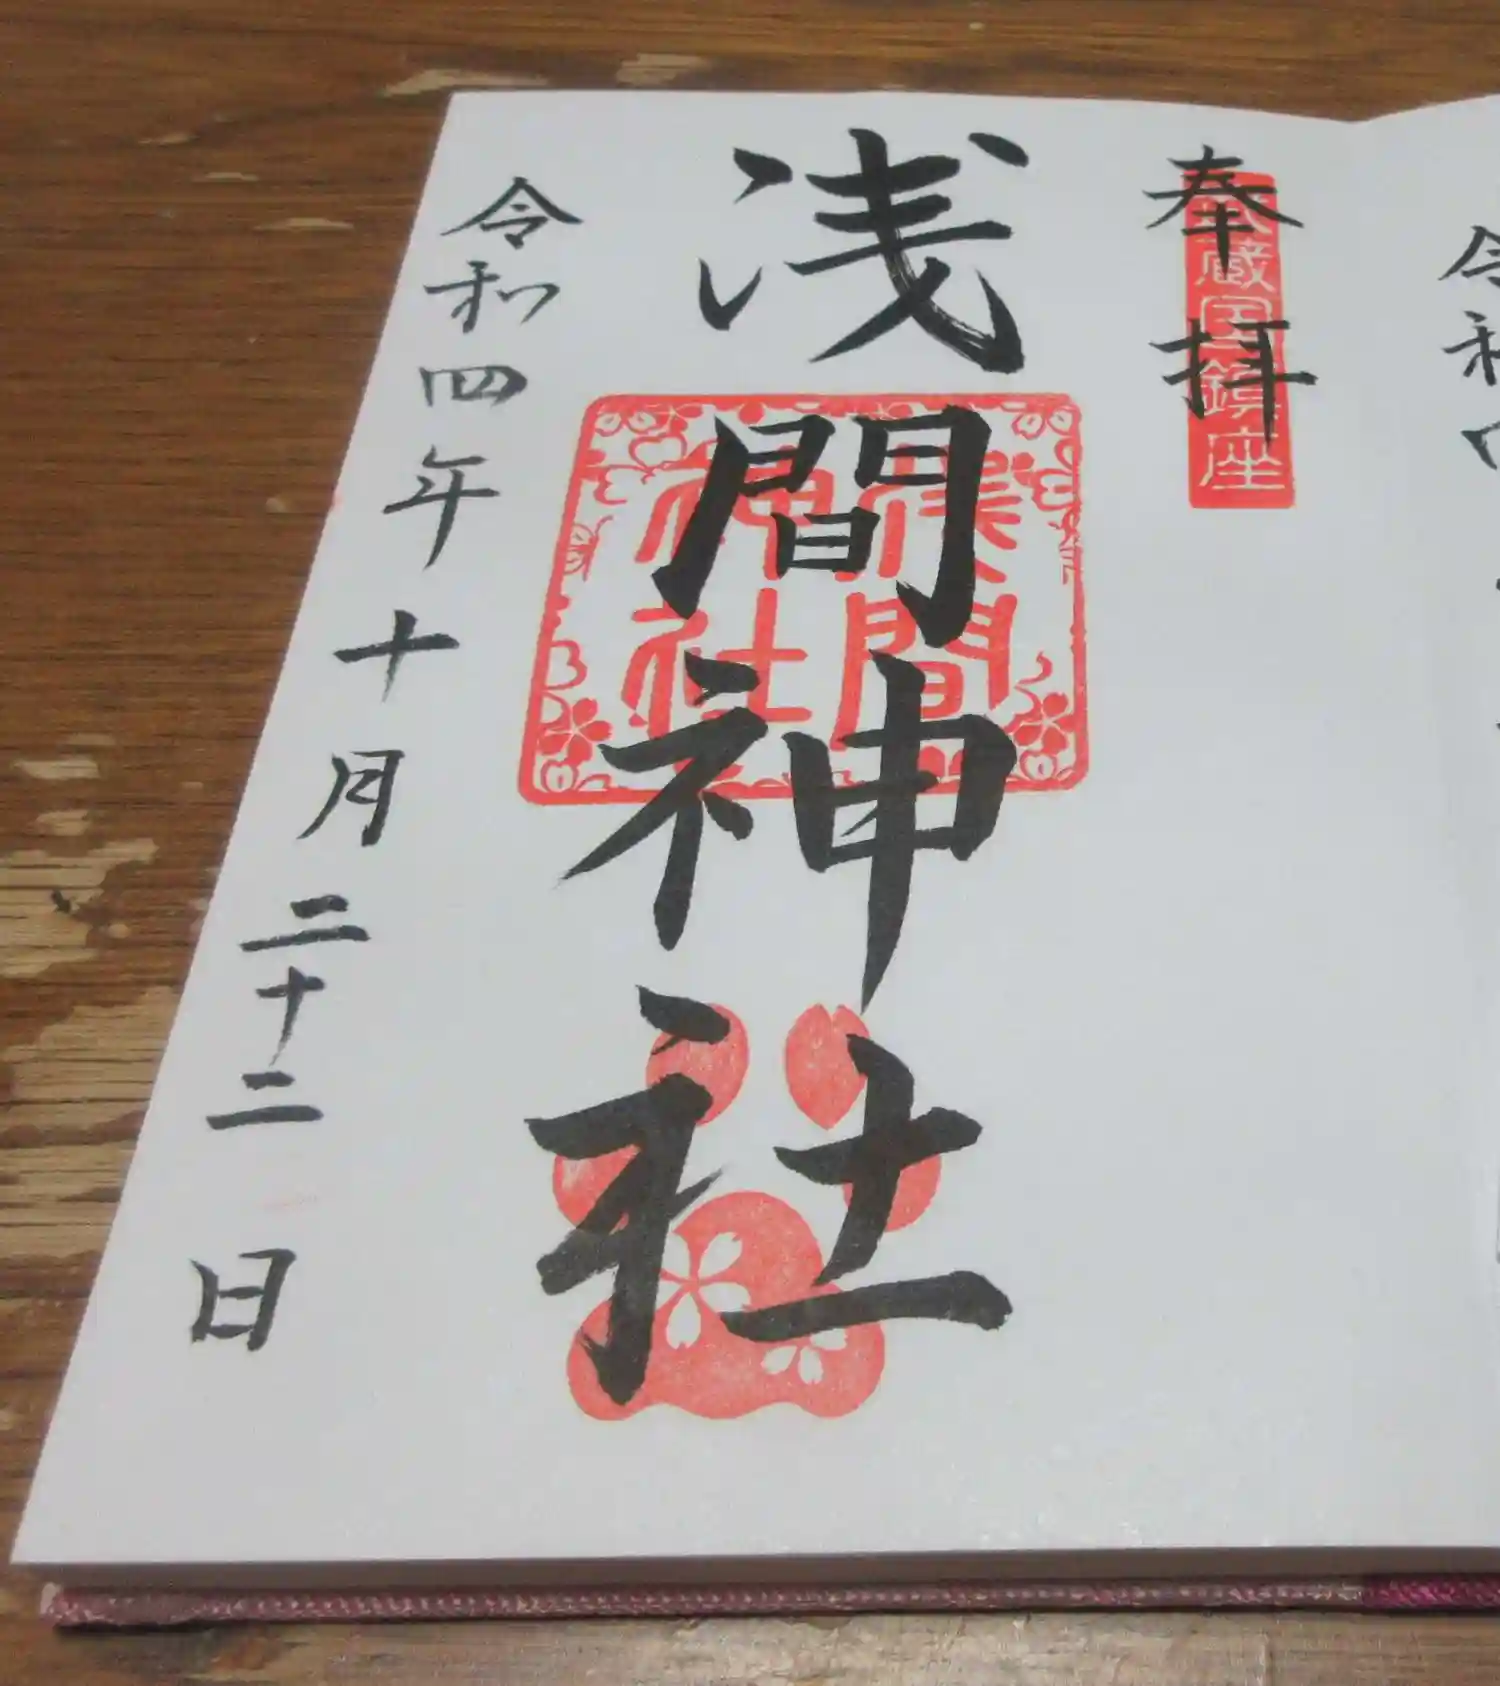 奉拝
武蔵国鎮座
浅間神社
浅間
神社
令和四年十月二十二日
令和四